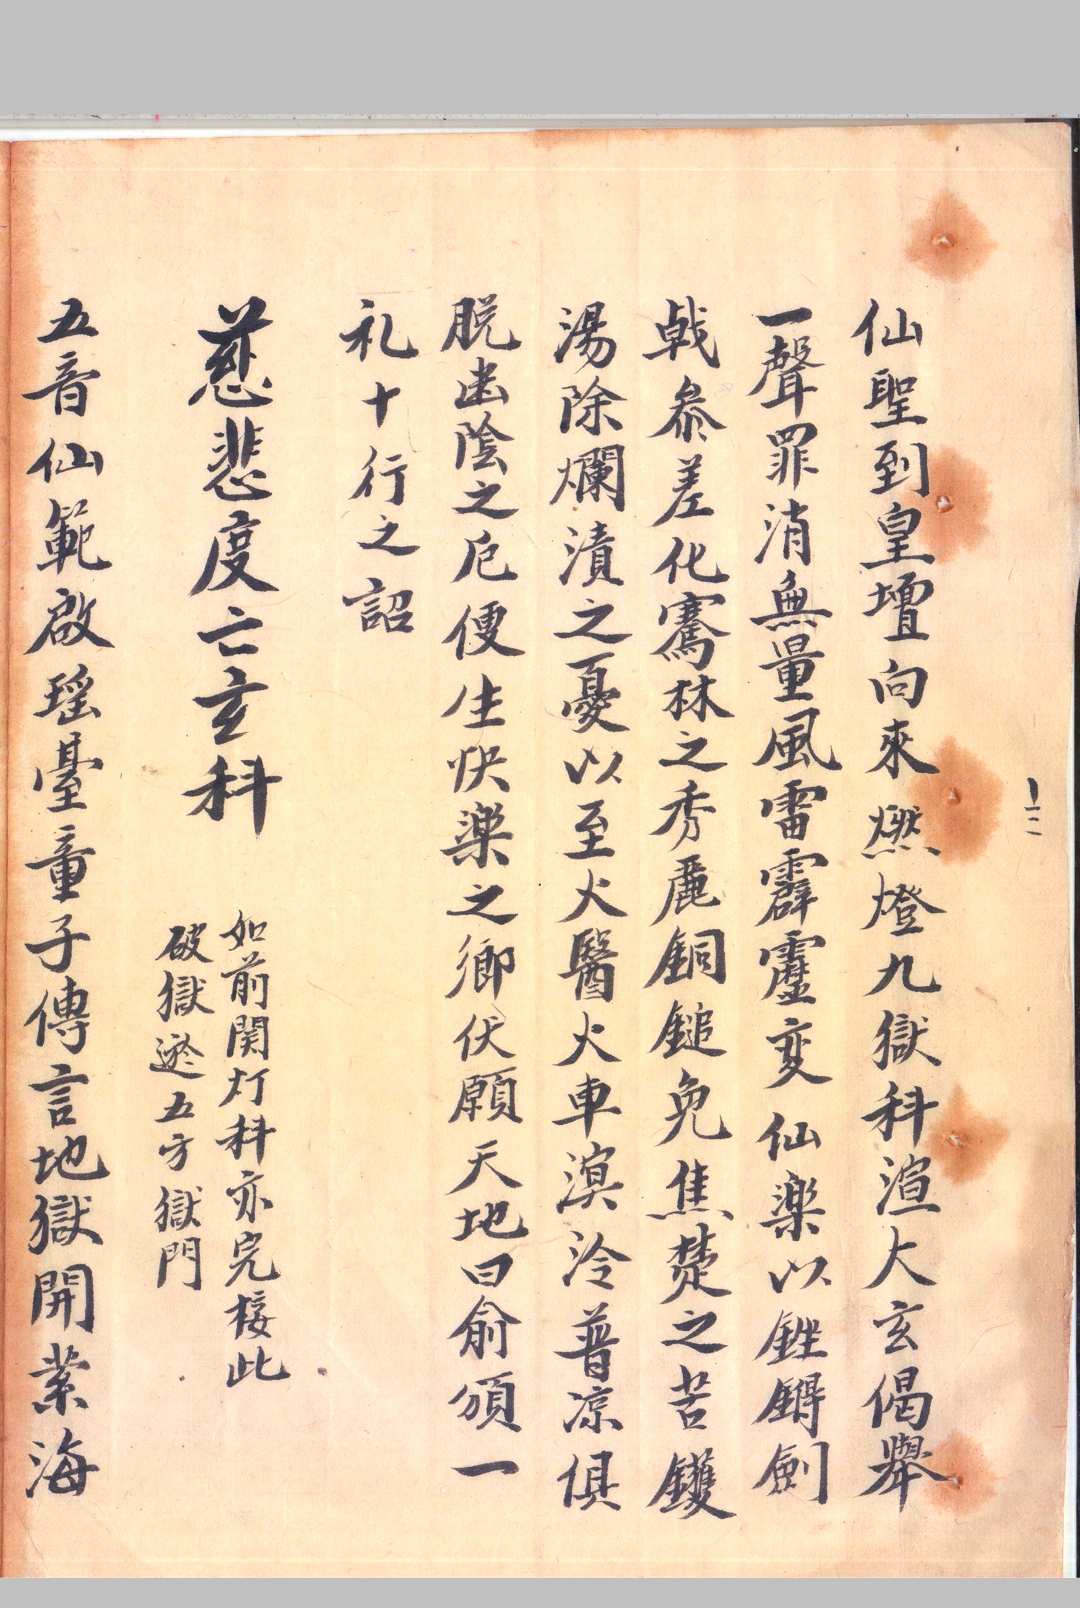 十二
仙聖到皇壇向來燃燈九獄科渲大玄偈舉
一聲罪消無量風雷霹靂变仙楽以銼鍀劍
戟叅差化騫林之秀麗銅鎚免焦楚之苦鑊
湯除爛漬之憂以至火醫火車溟泠普凉俱
脱幽陰之厄便生快楽之鄉伏願天地曰俞頒一
礼十行之詔
慈悲度亡玄科
如前関灯科亦完接此
破獄遊五方獄門
五音仙範啟瑶臺童子傳言地獄開業海